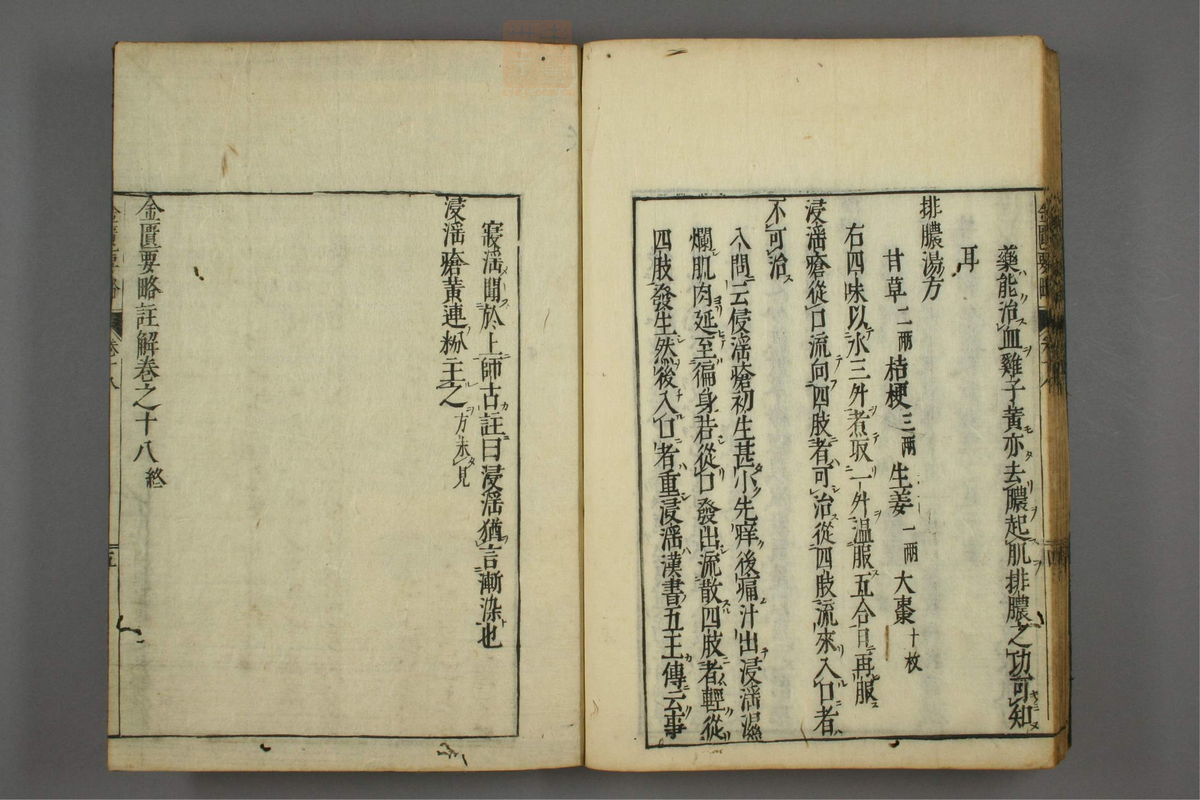 藥能治血雞子黃亦去膿起肌排膿之功可知
耳
排膿湯方
甘草二兩桔梗三兩生姜一兩大棗十枚
右四味以水三升煮取一升温服五合日再服
浸淫瘡從口流向四肢者可治從四肢流來入口者
不可治
入問云侵淫瘡初生甚小先痒後痛汁出浸淫濕
爛肌肉延至徧身若從口發出流散四肢者輕從
四肢發生然後入口者重浸淫漢書五王傳云事
寖淫聞於上師古註曰浸淫猶言漸染也
浸淫瘡黃連粉主之方未見
金匱要略註解卷之十八終
金匱要略
卷十八
五
金匱要略
卷十八
四